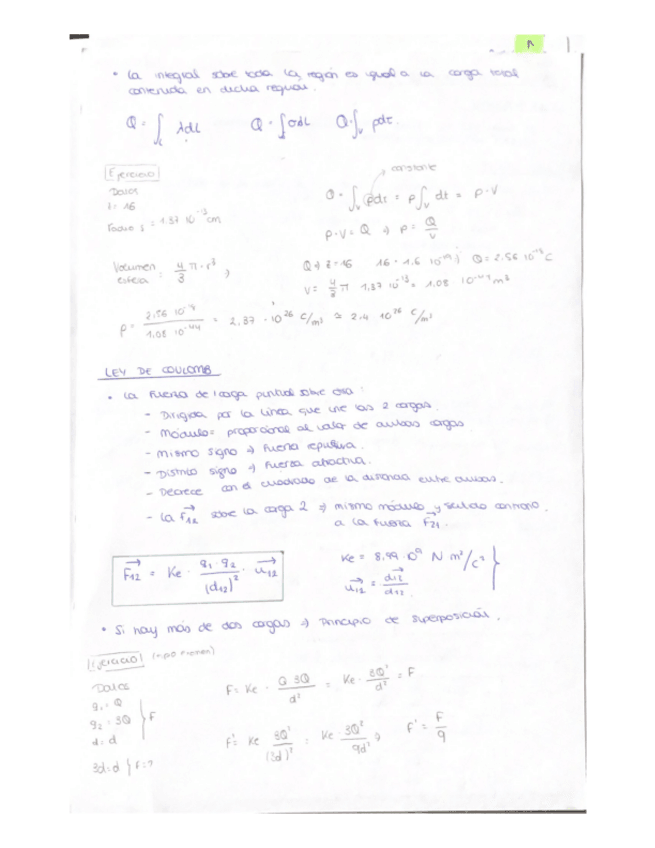 • La integral sobre toda la región es igual a la carga total
contenida en dicha región.
Q = ∫L λdL   Q = ∫ σdL   Q = ∫V ρdτ.
Ejercicio
Datos
z = 16
radio s = 1.37 10⁻¹³ cm
constante
Q = ∫V ρdτ = ρ∫V dτ = ρ·V
ρ·V = Q ⇒ ρ = Q/V
Volumen esfera : 4/3 π·r³
Q ⇒ z=16   16 · 1.6   Q = 2.56
V = 4/3 π 1.37 10⁻¹³ = 1.08 · 10⁻⁴⁴ m³
ρ = 2.56 / 1.08 10⁻⁴⁴ = 2.37 · 10²⁶ C/m³ ≃ 2.4 · 10²⁶ C/m³
LEY DE COULOMB
• La Fuerza de 1 carga puntual sobre otra :
- Dirigida por la línea que une las 2 cargas.
- Módulo = proporcional al valor de ambas cargas.
- Mismo signo ⇒ Fuerza repulsiva.
- Distinto signo ⇒ Fuerza atractiva.
- Decrece con el cuadrado de la distancia entre ambas.
- La F⃗12 sobre la carga 2 ⇒ mismo módulo y sentido contrario
a la fuerza F⃗21.
F⃗12 = Ke · q1·q2/(d12)² · u⃗12
Ke = 8.99·10⁹ N m²/C²
u⃗12 = d⃗12/d12
• Si hay más de dos cargas ⇒ Principio de superposición.
Ejercicio (tipo examen)
Datos
q1 = Q
q2 = 3Q } F
d = d
3d = d } F = ?
F = Ke · Q 3Q/d² = Ke · 3Q²/d² = F
F' = Ke 3Q²/(3d)² = Ke · 3Q²/9d² ⇒ F' = F/9